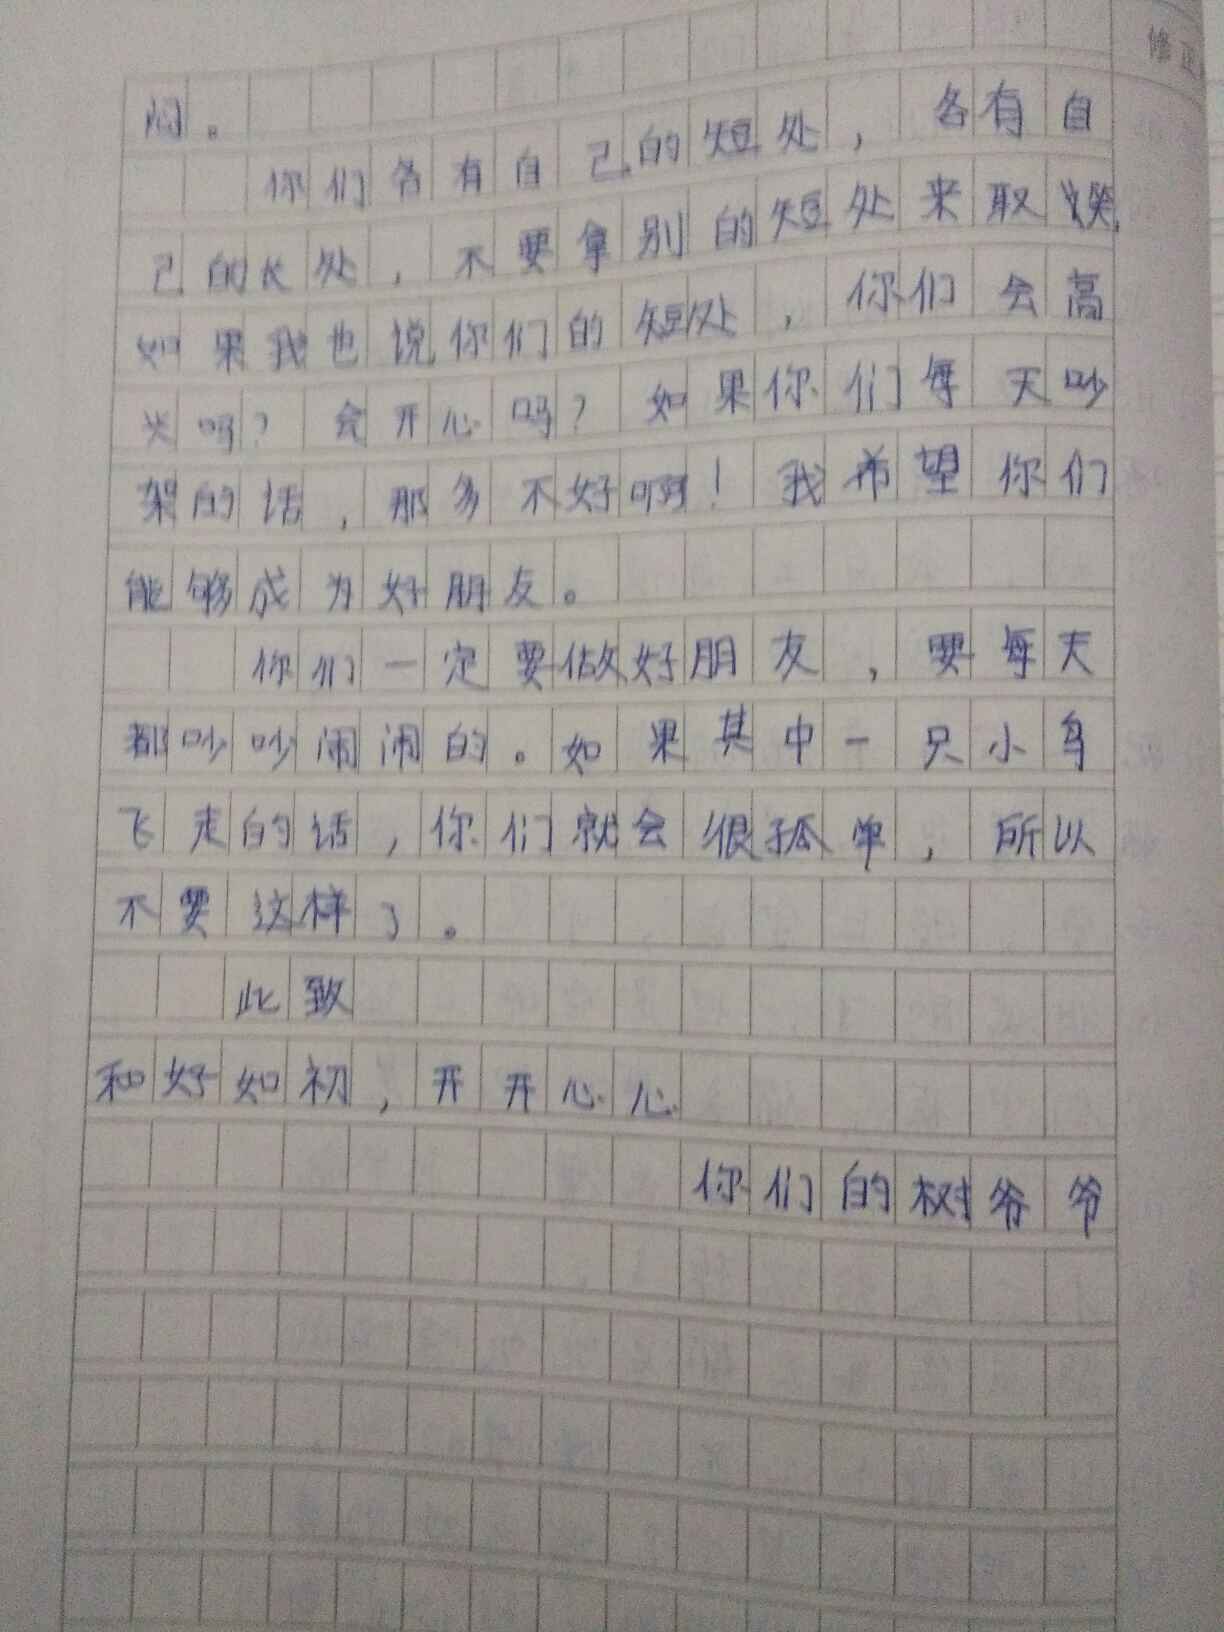 修正
闷。
你们各有自己的短处，各有自
己的长处，不要拿别的短处来取笑
如果我也说你们的短处，你们会高
兴吗？会开心吗？如果你们每天吵
架的话，那多不好啊！我希望你们
能够成为好朋友。
你们一定要做好朋友，要每天
都吵吵闹闹的。如果其中一只小鸟
飞走的话，你们就会很孤单，所以
不要这样了。
此致
和好如初，开开心心
你们的树爷爷